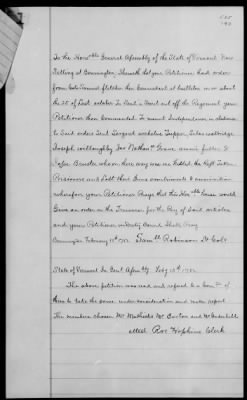 To the Honble General Assembly of the State of Vermont Now
Setting at Bennington, Sheweth that your Petitioner had orders
from Col. Samuel Fletcher then Commandant at Castleton on or about
the 25 of last October to Send a Scout out off the Regement your
Petitioner then Commanded. In manner obedience
to Said orders Sent Sergeant Archelus Tupper, Silas
Joseph Willoughby Jno. Nathan Grace annis fuller &
Safee Bewster whom there away was Killed the Rest Taken
Prisoners and Lost their Guns accoutrements & ammunition
wherefore your Petitioner Prays that this Honble house would
Give an order on the Treasurer for the Pay of Said articles
and your Petitioner in Duty bound Shall Pray
Bennington February 15th 1782 Samll Robinson Lt Colo
State of Vermont In Genl Assembly Feby 15th 1782
The above petition was read and referred to a Comtee of
three to take the same under consideration and make report
The members chosen Mr Mathecks Mr Burton and Mr Underhill
attest Ros: Hopkins Clerk